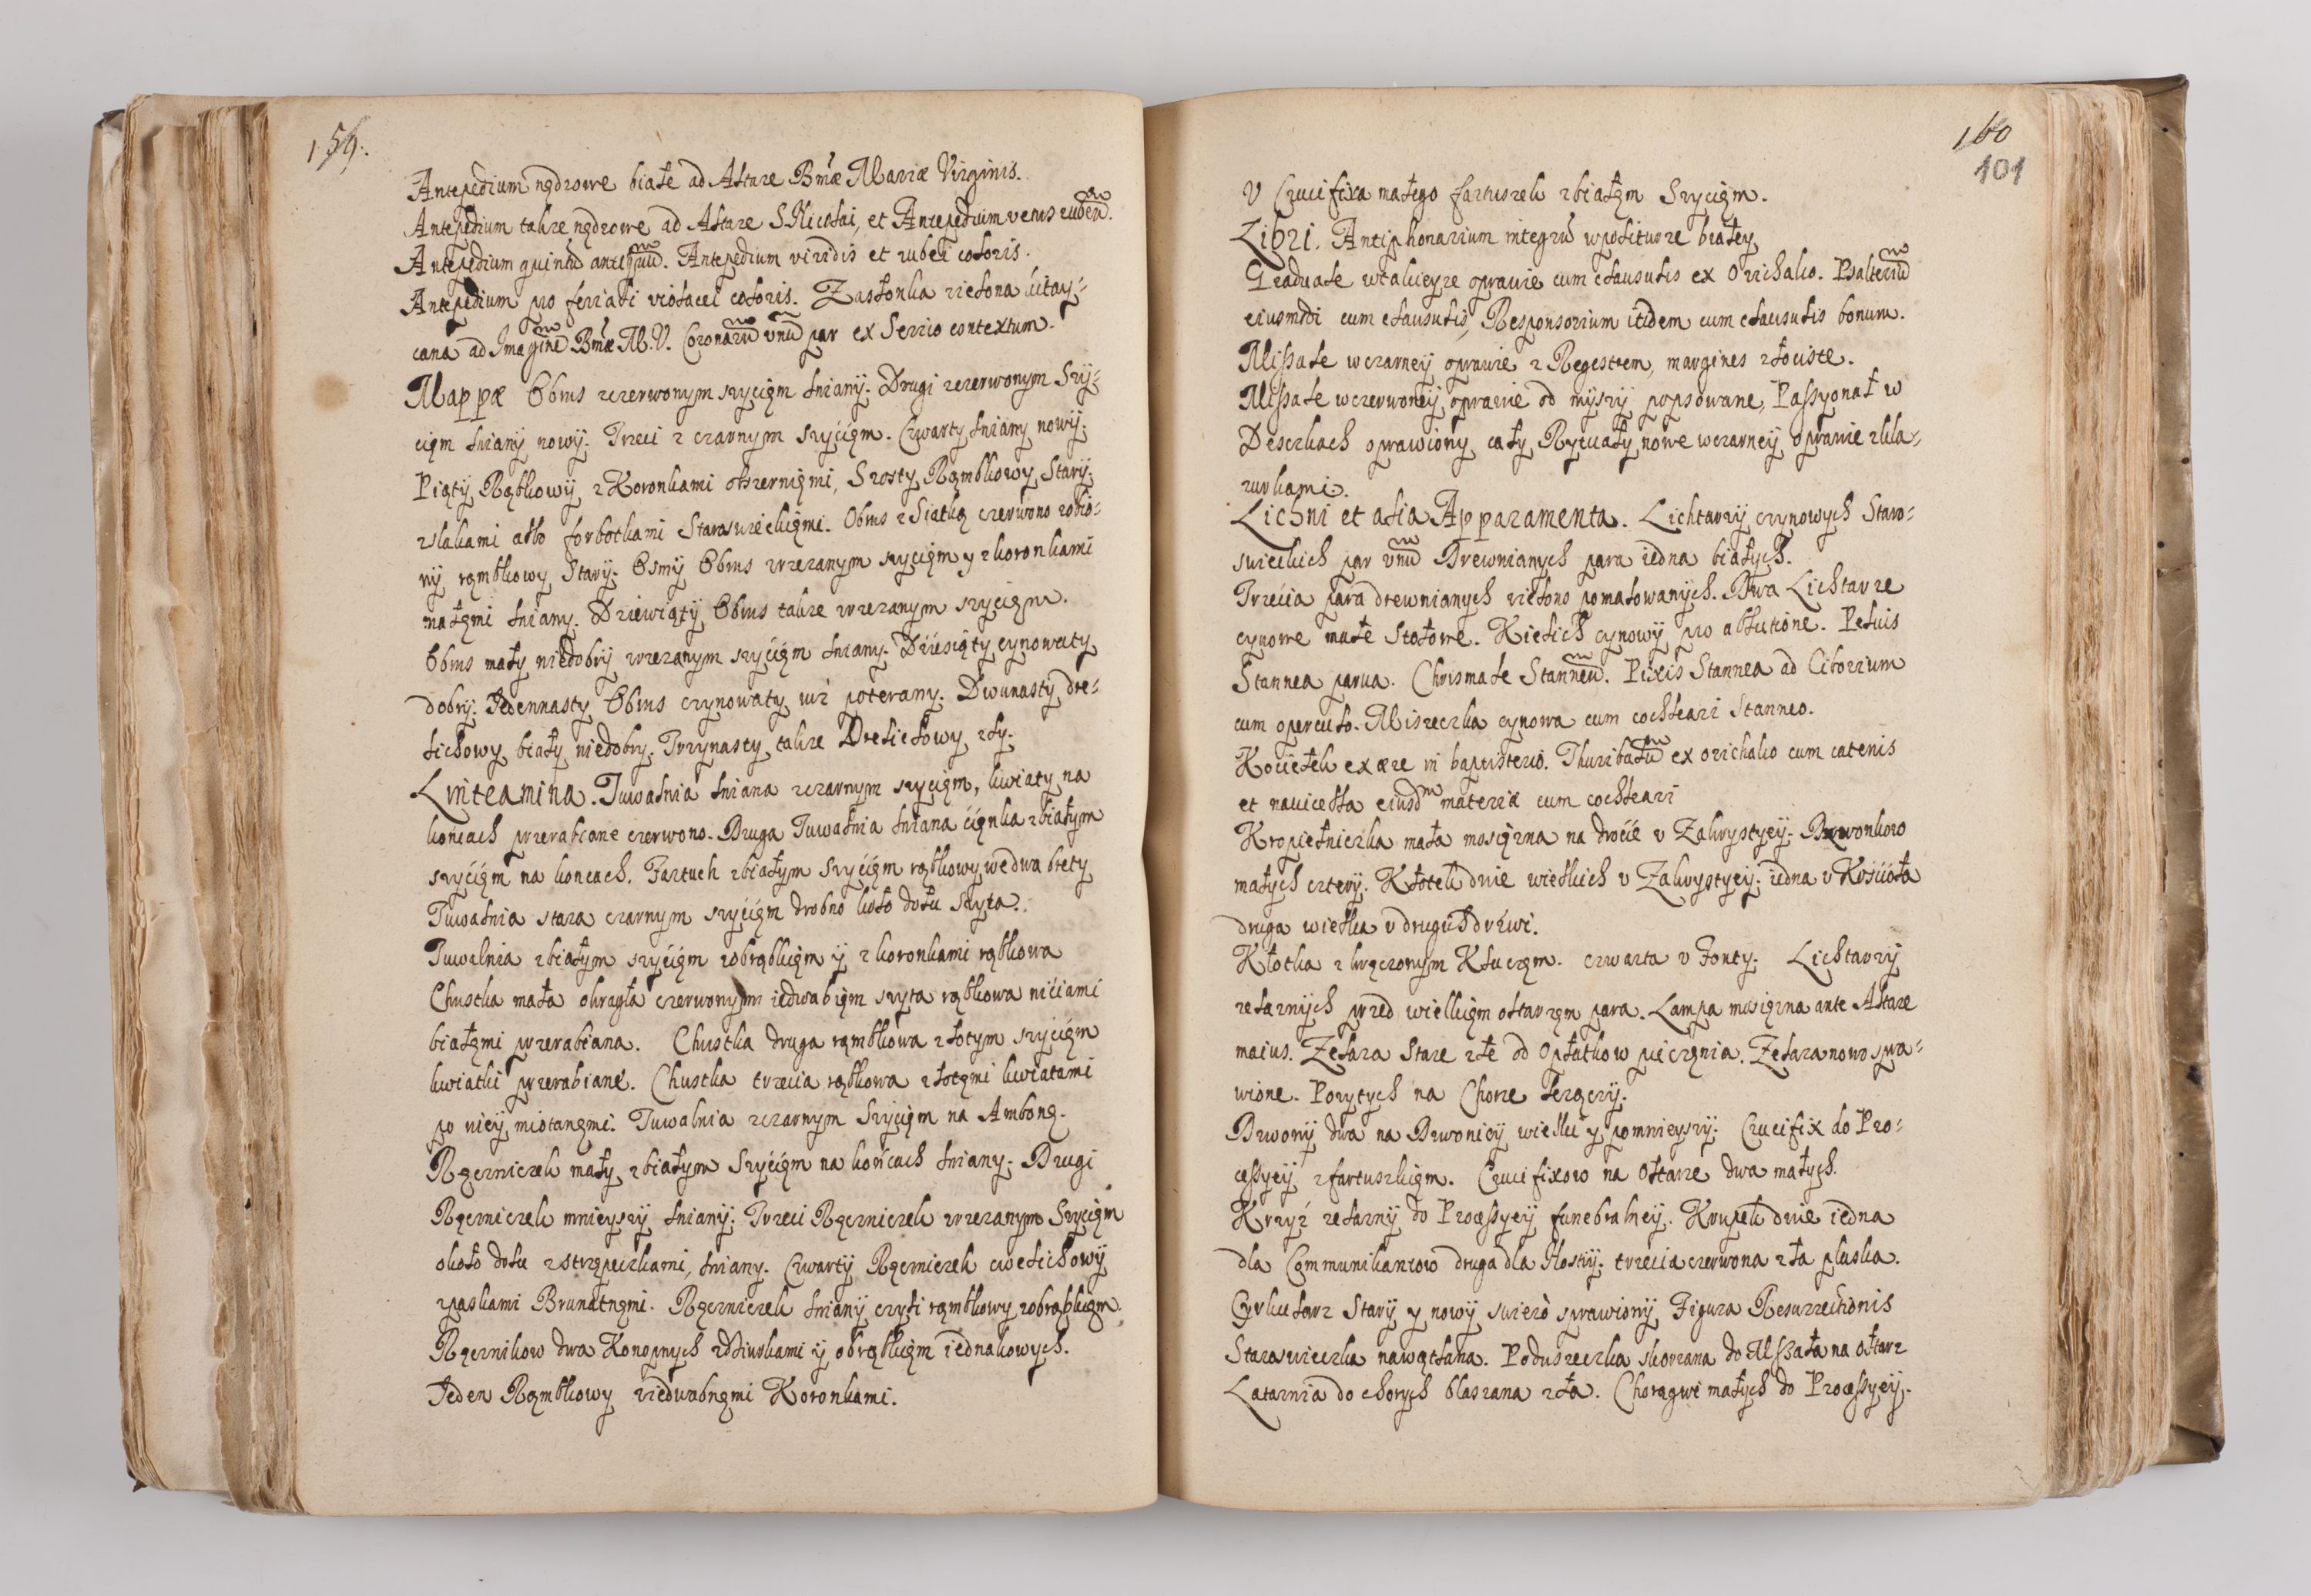 159.
Antepedium nędzowe białe ad Altare Bmæ Mariæ Virginis.
Antepedium takze nędzowe ad Altare S Nicolai, et Antepedium vetus rubeũ.
Antepedium quintũ antiquũ. Antepedium viridis et rubei coloris.
Antepedium pro feriali violacei coloris. Zasłonka zielona kitay-
cana ad Imaginẽ Bmæ M. V. Coronarũ vnũ par ex Serrio contextum.
Mappæ Obrus zczerwonym szyciem lniany. Drugi zczerwonym Szy-
ciem lniany nowy. Trzeci z czarnym szyciem. Czwarty lniany nowy.
Piąty Rąbkowy z Koronkami obszernięmi, Szosty Rąmbkowy Stary
zslakami albo forbotkami Staroswieckięmi. Obrus z Siatką czerwono robio-
ny rąmbkowy Stary. Osmy Obrus zrzezanym szyciem y zkoronkami
małęmi lniany. Dziewiąty Obrus takze zrzezanym szyciem.
Obrus mały niedobry zrzezanym szyciem lniany. Dziesiąty cynowaty
dobry. Jedennasty Obrus czynowaty iuz poterany. Dwunasty dre-
lichowy biały niedobry. Trzynasty takze Drelichowy zły.
Linteamina. Tuwalnia lniana zczarnym szyciem, kwiaty na
końcach przerabiane czerwono. Druga Tuwalnia lniana cięnka zbiałym
szyciem na koncach. Fartuch zbiałym szyciem rąbkowy wedwa brety
Tuwalnia stara czarnym szyciem drobno koło dołu szyta.
Tuwalnia zbiałym szyciem zobrąbkięm y z koronkami rąbkowa
Chustka mała okragła czerwonym iedwabięm szyta rąbkowa niciami
białęmi przerabiana. Chustka druga rąmbkowa złotym szyciem
kwiatki przerabiane. Chustka trzecia rąbkowa złotęmi kwiatami
po niey miotanęmi. Tuwalnia zczarnym Szyciem na Ambonę.
Ręczniczek mały zbiałym Szyciem na końcach lniany. Drugi
Ręczniczek mnieyszy lniany. Trzeci Ręczniczek zrzezanym Szyciem
około dołu zstrzępeczkami, lniany. Czwarty Ręczniczek cwelichowy
zpaskami Brunatnęmi. Ręczniczek lniany czyli rąmbkowy zobrąbkięm.
Ręcznikow dwa Konopnych zdziurkami y obrąbkięm iednakowych.
Jeden Rąmbkowy ziedwabnęmi Koronkami.
160
101
V Crucifixa małego fartuszek zbiałęm Szyciem.
Libri. Antiphonarium integrũ wpoliturze białey
Graduale wtakieyze oprawie cum clausulis ex Orichalco. Psalteriũ
eiusmodi cum clausulis, Responsorium itidem cum clausulis bonum.
Missale wczarney oprawie z Regestrem, margines złociste.
Missale wczerwoney oprawie od myszy popsowane, Passyonał w
Deszczkach oprawiony cały Rytuały nowe wczarney oprawie zkla-
zurkami.
Lichni et alia Apparamenta. Lichtarzy czynowych Staro-
swieckich par vnũ Drewnianych para iedna białych.
Trzecia para drewnianych zielono pomalowanych. Dwa Lichtarze
cynowe małe Stołowe. Kielich cynowy pro ablutione. Peluis
Stannea parua. Chrismale Stanneũ. Pixis Stannea ad Ciborium
cum operculo. Miseczka cynowa cum cochleari Stanneo.
Kociełek ex ære in baptisterio. Thuribulũ ex orichalco cum catenis
et nauicella eiusdm materiæ cum cochleari
Kropielniczka mała mosiężna na drocie v Zakrystyey. Dzwonkow
małych cztery. Kłotek dwie wielkich v Zakrystyey. iedna v Kościoła
druga wielka v drugich drzwi.
Kłotka z kręconym Kluczęm. czwarta v Fonty. Lichtarzy
zelaznych przed wielkięm ołtarzęm para. Lampa mosiężna ante Altare
maius. Zelaza Stare złe od Opłatkow pieczęnia. Zelaza nowo spra-
wione. Pozytych na Chorze
Dzwony dwa na Dzwonicy wielki y pomnieyszy. Crucifix do Pro-
cessyey zfartuszkięm. Crucifixow na Ołtarze dwa małych.
Krzyż zelazny do Processyey funebralney. Krupek dwie iedna
dla Communikantow druga dla Hostiy. trzecia czerwona zła płaska.
Cyrkularz Stary y nowy swiezo sprawiony Figura Resurrectionis
Staroswiecka nawątlana. Poduszeczka skorzana do Mszała na ołtarz
Latarnia do chorych blaszana zła. Choragwi małych do Processyey.